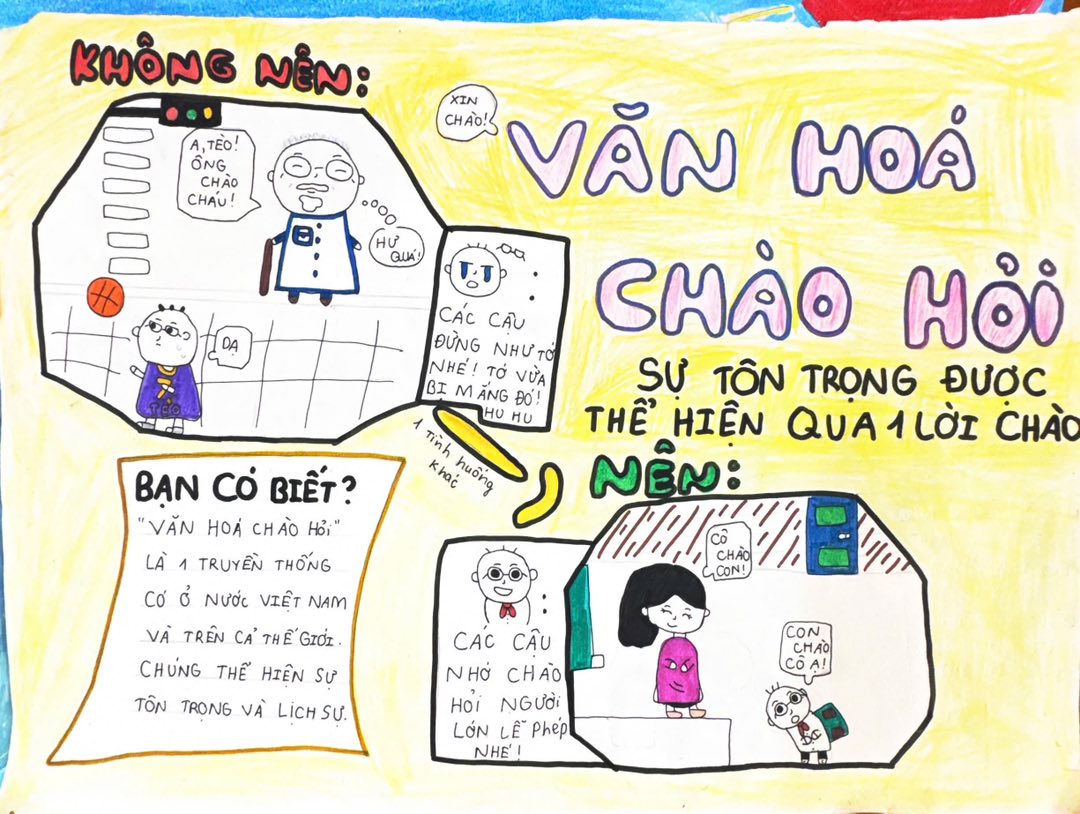 KHÔNG NÊN:
A, TÈO!
ÔNG
CHÀO
CHÁU!
HƯ
QUÁ!
DẠ
TÈO
CÁC CẬU
ĐỪNG NHƯ TỚ
NHÉ! TỚ VỪA
BI MẮNG ĐÓ!
HU HU
1 tình huống
khác
XIN
CHÀO!
VĂN HOÁ
CHÀO HỎI
SỰ TÔN TRỌNG ĐƯỢC
THỂ HIỆN QUA 1 LỜI CHÀO
BẠN CÓ BIẾT?
"VĂN HOÁ CHÀO HỎI"
LÀ 1 TRUYỀN THỐNG
CÓ Ở NƯỚC VIỆT NAM
VÀ TRÊN CẢ THẾ GIỚI.
CHÚNG THỂ HIỆN SỰ
TÔN TRỌNG VÀ LỊCH SỰ.
NÊN:
CÁC CẬU
NHỚ CHÀO
HỎI NGƯỜI
LỚN LỄ PHÉP
NHÉ!
CÔ
CHÀO
CON!
CON
CHÀO
CÔ Ạ!